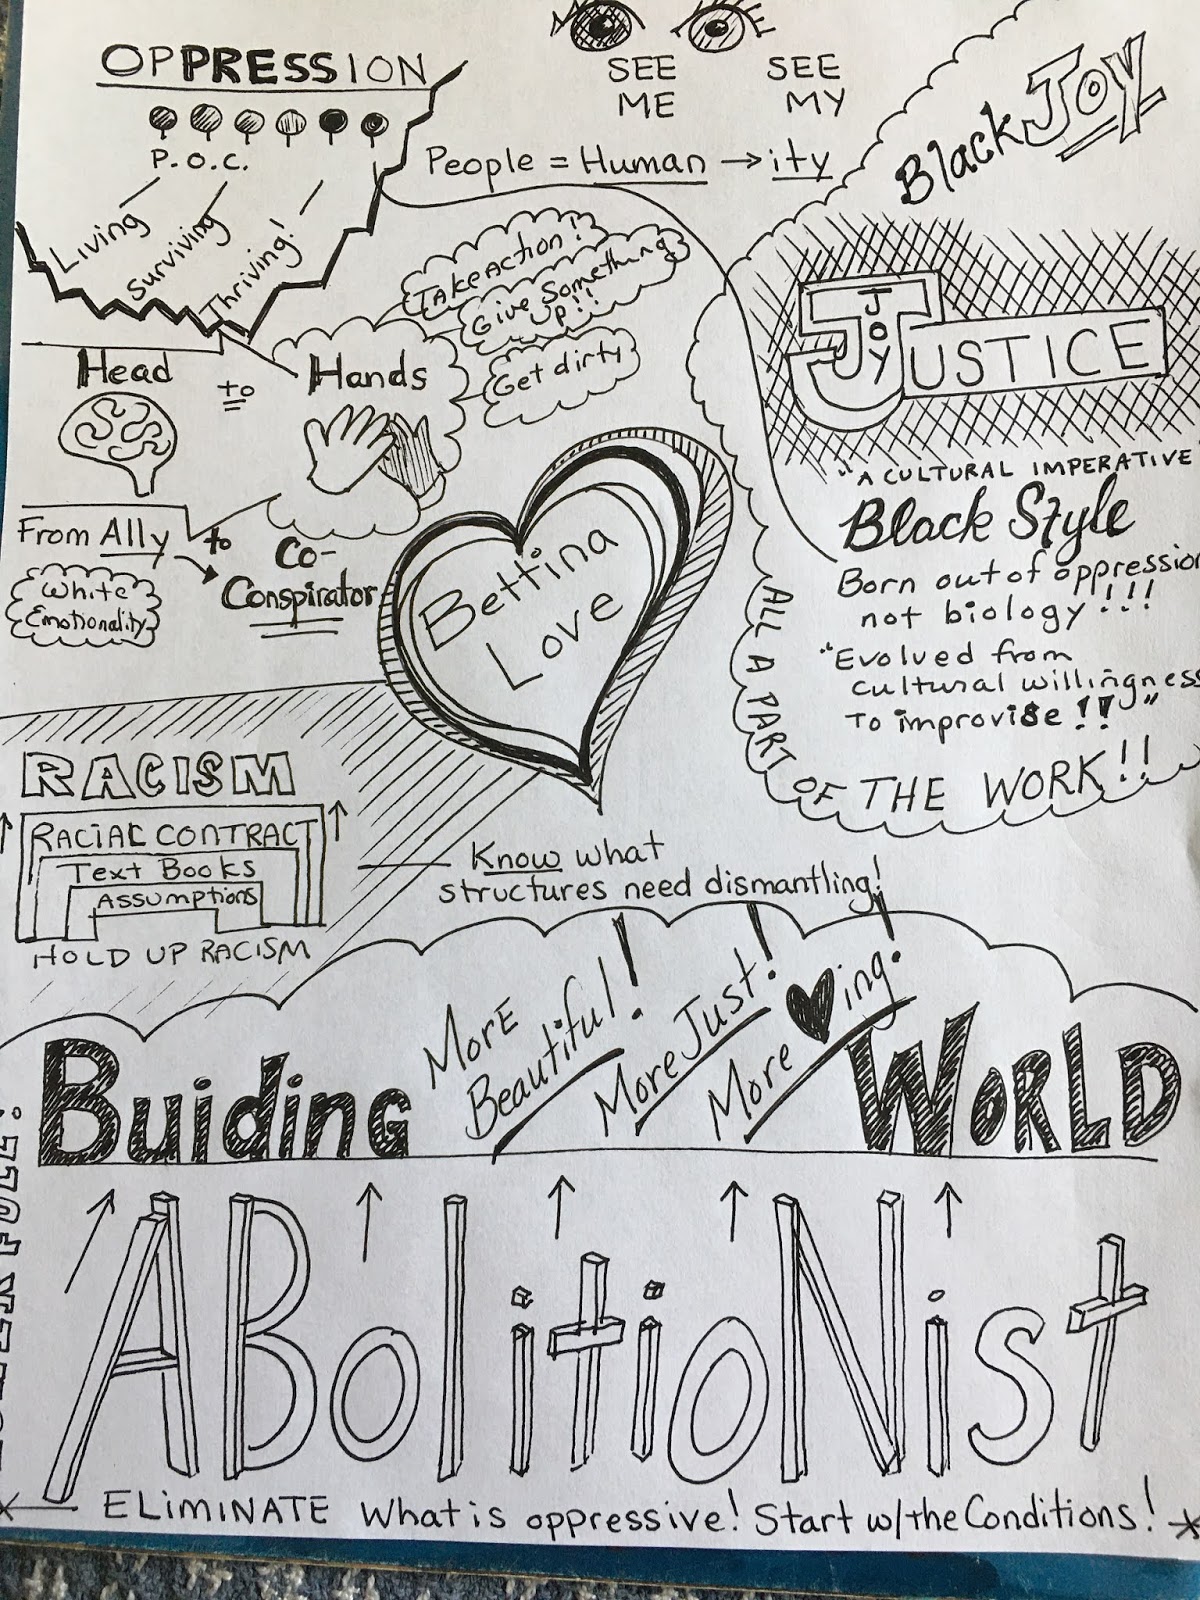 OPPRESSION
P.O.C.
Living
surviving
Thriving!
SEE
ME
SEE
MY
People = Human → ity
Black JOY
JOY
JUSTICE
"A CULTURAL IMPERATIVE"
Black Style
Born out of oppression
not biology!!!
"Evolved from
cultural willingness
To improvise!!"
ALL A PART
OF THE WORK!!
Take Action!
Give Something
up!!
Get dirty
Head
to
Hands
From Ally
to
Co-
Conspirator
White
Emotionality
Bettina
Love
RACISM
RACIAL CONTRACT
Text Books
Assumptions
HOLD UP RACISM
Know what
structures need dismantling!
Buiding
More
Beautiful!
More Just!
More ♥ing!
WORLD
ABolitioNist
ELiMINATE What is oppressive! Start w/the Conditions!